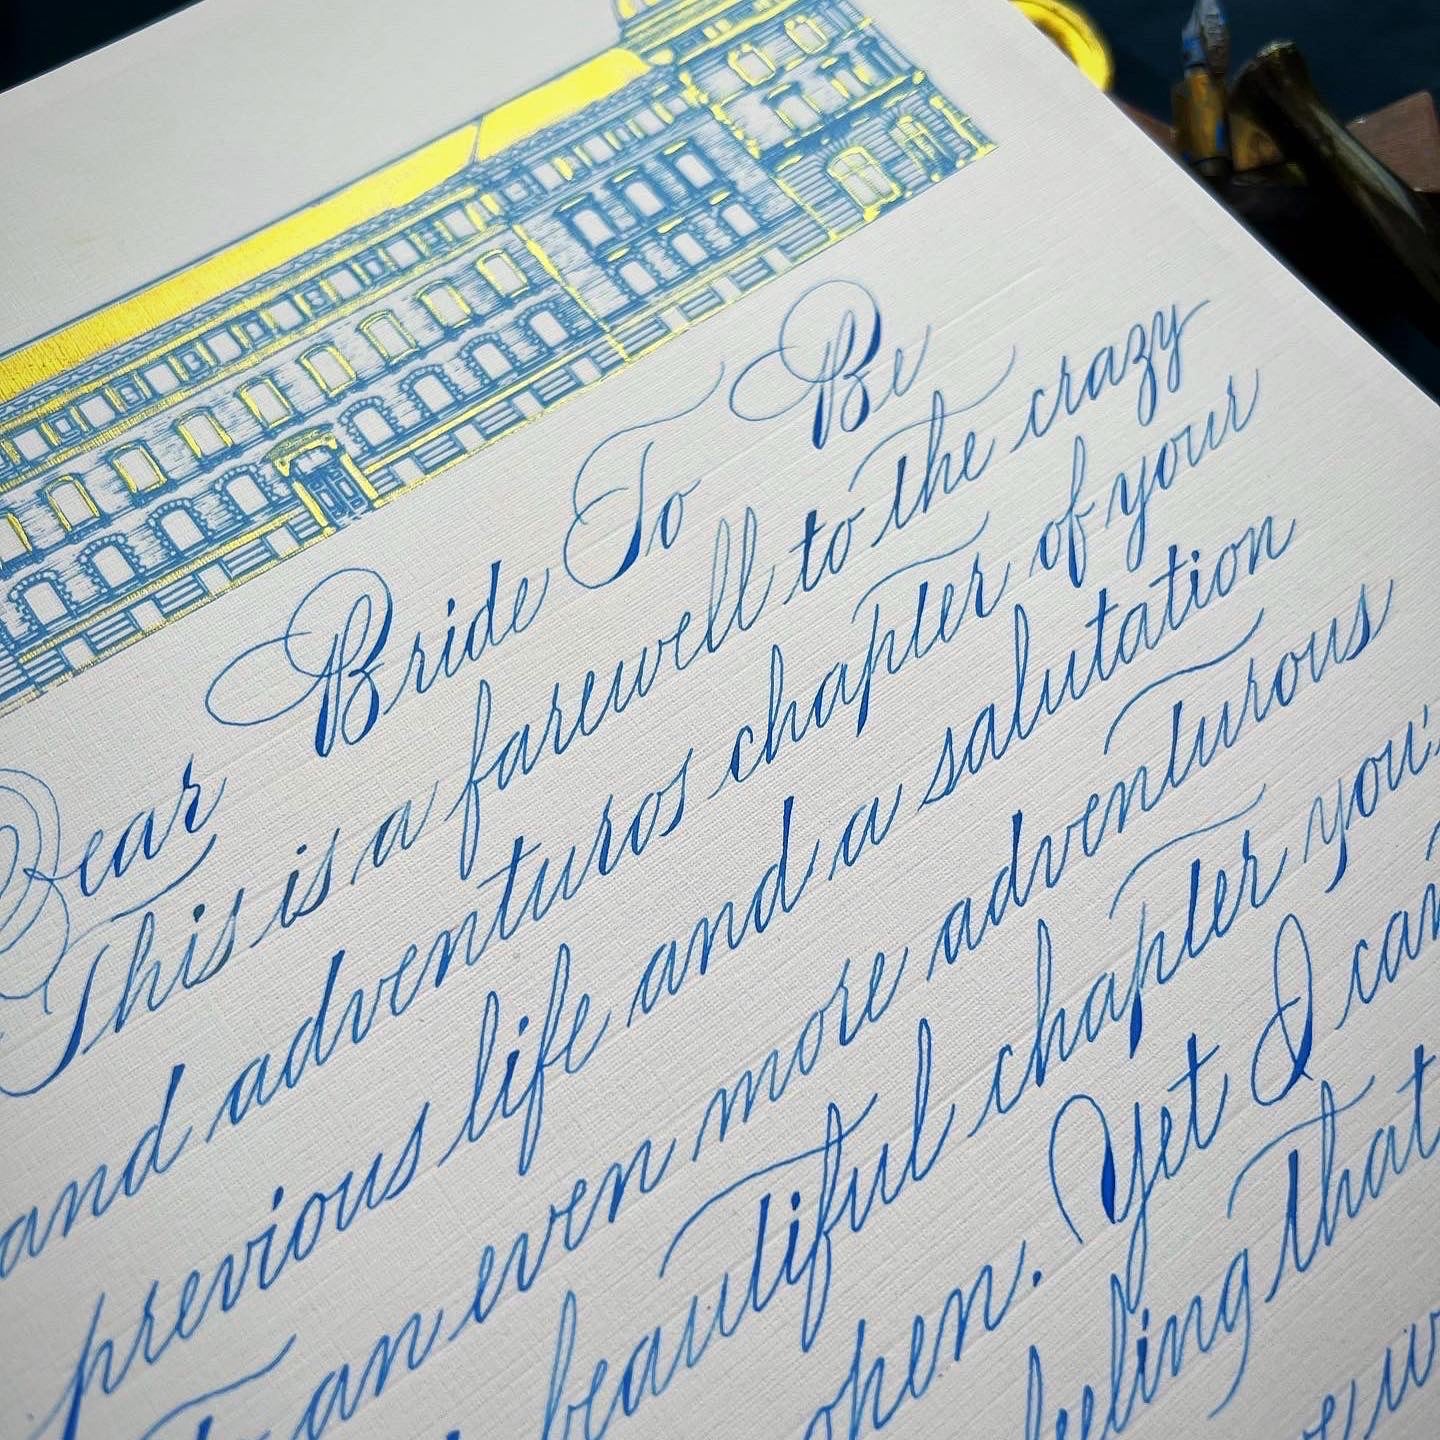 Dear Bride To Be
This is a farewell to the crazy
and adventuros chapter of your
previous life and a salutation
an even more adventurous
beautiful chapter
open. Yet I can
feeling that